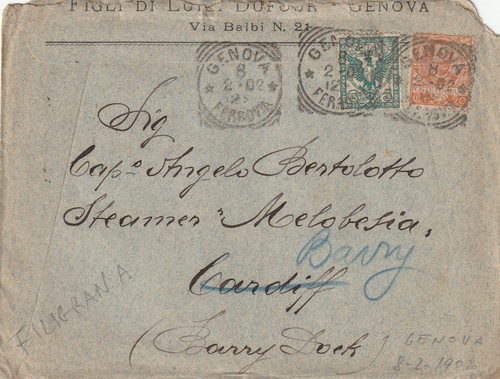 FIGLI DI LUIGI DUFOUR - GENOVA
Via Balbi N. 21
GENOVA
8
2-02
12
FERROVIA
GENOVA
8
2-02
12
FERROVIA
GENOVA
8
2-02
Sig
Capº Angelo Bertolotto
Steamer "Melobesia"
Barry
Cardiff
(Barry Dock)
FILIGRANA
GENOVA
8-2-1902